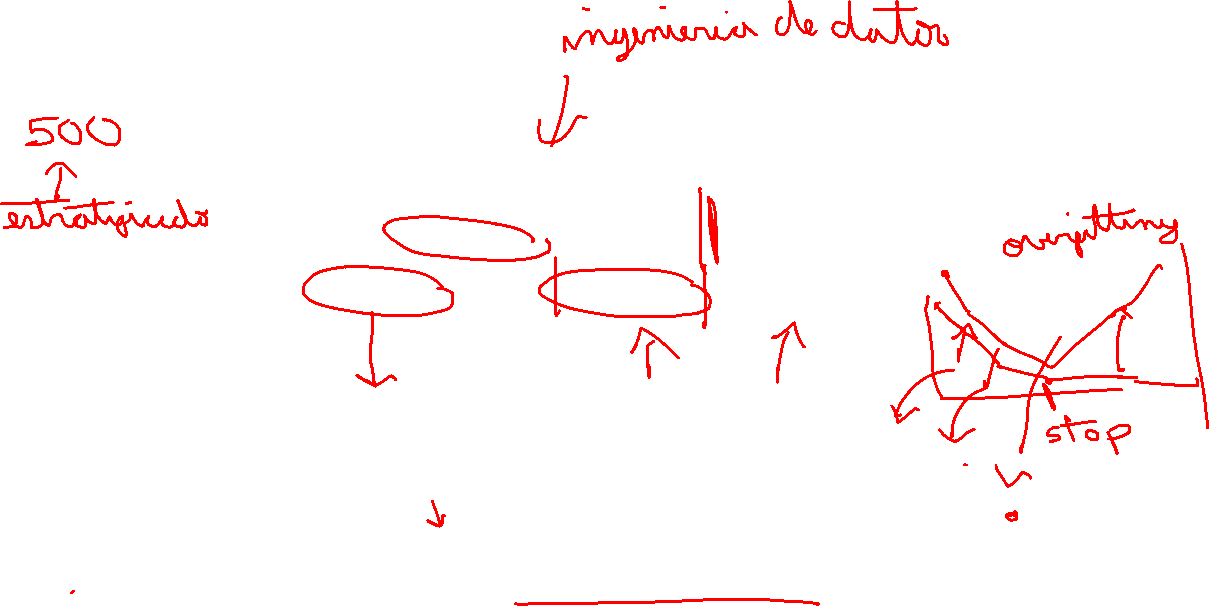 ingenieria de datos
500
estratificado
overfitting
stop